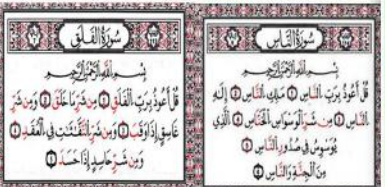 سُورَةُ النَّاسِ
بِسْمِ اللَّهِ الرَّحْمَٰنِ الرَّحِيمِ
قُلْ أَعُوذُ بِرَبِّ النَّاسِ مَلِكِ النَّاسِ إِلَٰهِ
النَّاسِ مِن شَرِّ الْوَسْوَاسِ الْخَنَّاسِ الَّذِي
يُوَسْوِسُ فِي صُدُورِ النَّاسِ
مِنَ الْجِنَّةِ وَالنَّاسِ
سُورَةُ الْفَلَقِ
بِسْمِ اللَّهِ الرَّحْمَٰنِ الرَّحِيمِ
قُلْ أَعُوذُ بِرَبِّ الْفَلَقِ مِن شَرِّ مَا خَلَقَ وَمِن شَرِّ
غَاسِقٍ إِذَا وَقَبَ وَمِن شَرِّ النَّفَّٰثَٰتِ فِي الْعُقَدِ
وَمِن شَرِّ حَاسِدٍ إِذَا حَسَدَ